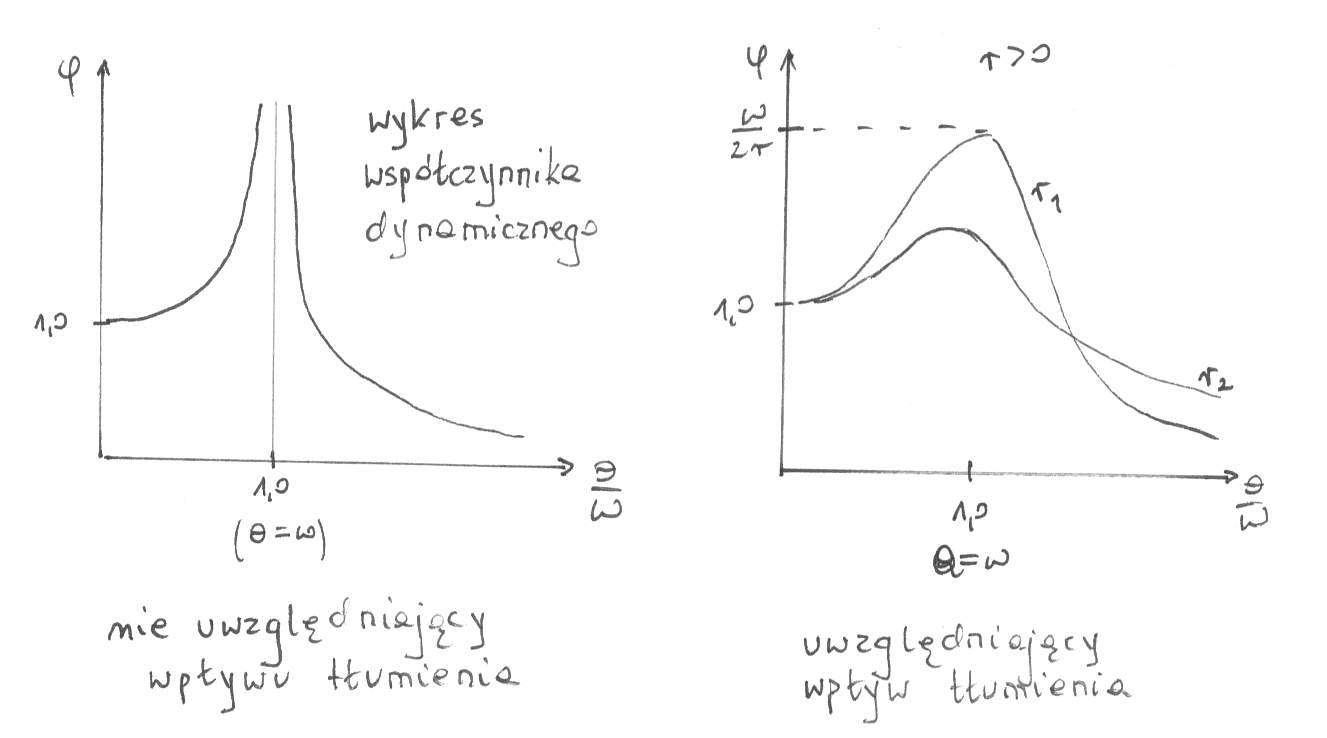 φ
wykres
współczynnika
dynamicznego
1,0
1,0
(θ=ω)
θ/ω
nie uwzględniający
wpływu tłumienia
φ
r>0
ω/2r
r1
1,0
r2
1,0
θ=ω
θ/ω
uwzględniający
wpływ tłumienia